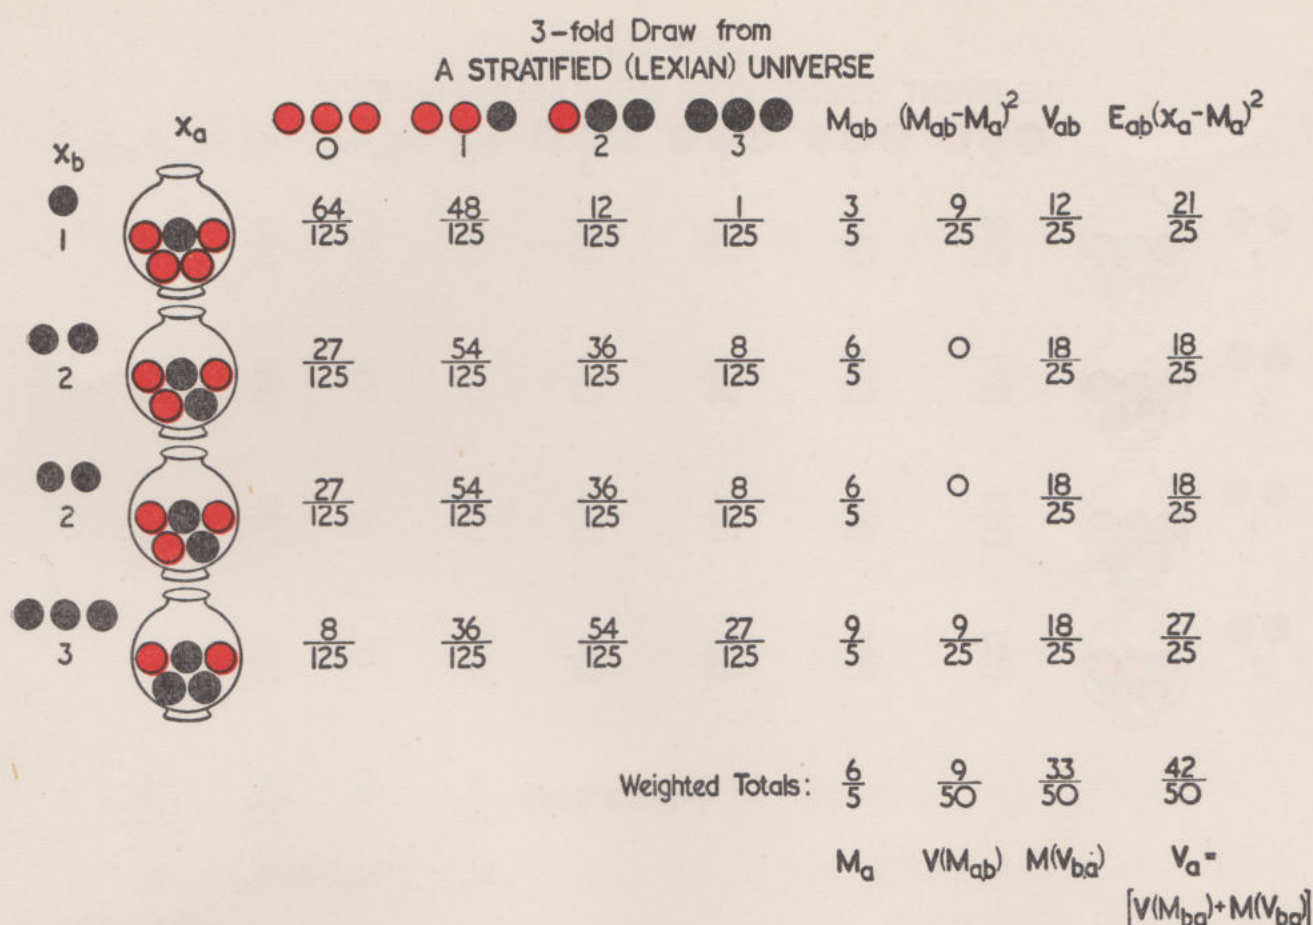 3-fold Draw from
A STRATIFIED (LEXIAN) UNIVERSE
x_b x_a 0 1 2 3 M_ab (M_ab-M_a)^2 V_ab E_ab(x_a-M_a)^2
1 64/125 48/125 12/125 1/125 3/5 9/25 12/25 21/25
2 27/125 54/125 36/125 8/125 6/5 0 18/25 18/25
2 27/125 54/125 36/125 8/125 6/5 0 18/25 18/25
3 8/125 36/125 54/125 27/125 9/5 9/25 18/25 27/25
Weighted Totals: 6/5 9/50 33/50 42/50
M_a V(M_ab) M(V_ba) V_a =
[V(M_ba)+M(V_ba)]